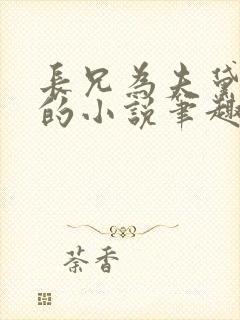 長兄為夫黛
的小說筆趣
茶香